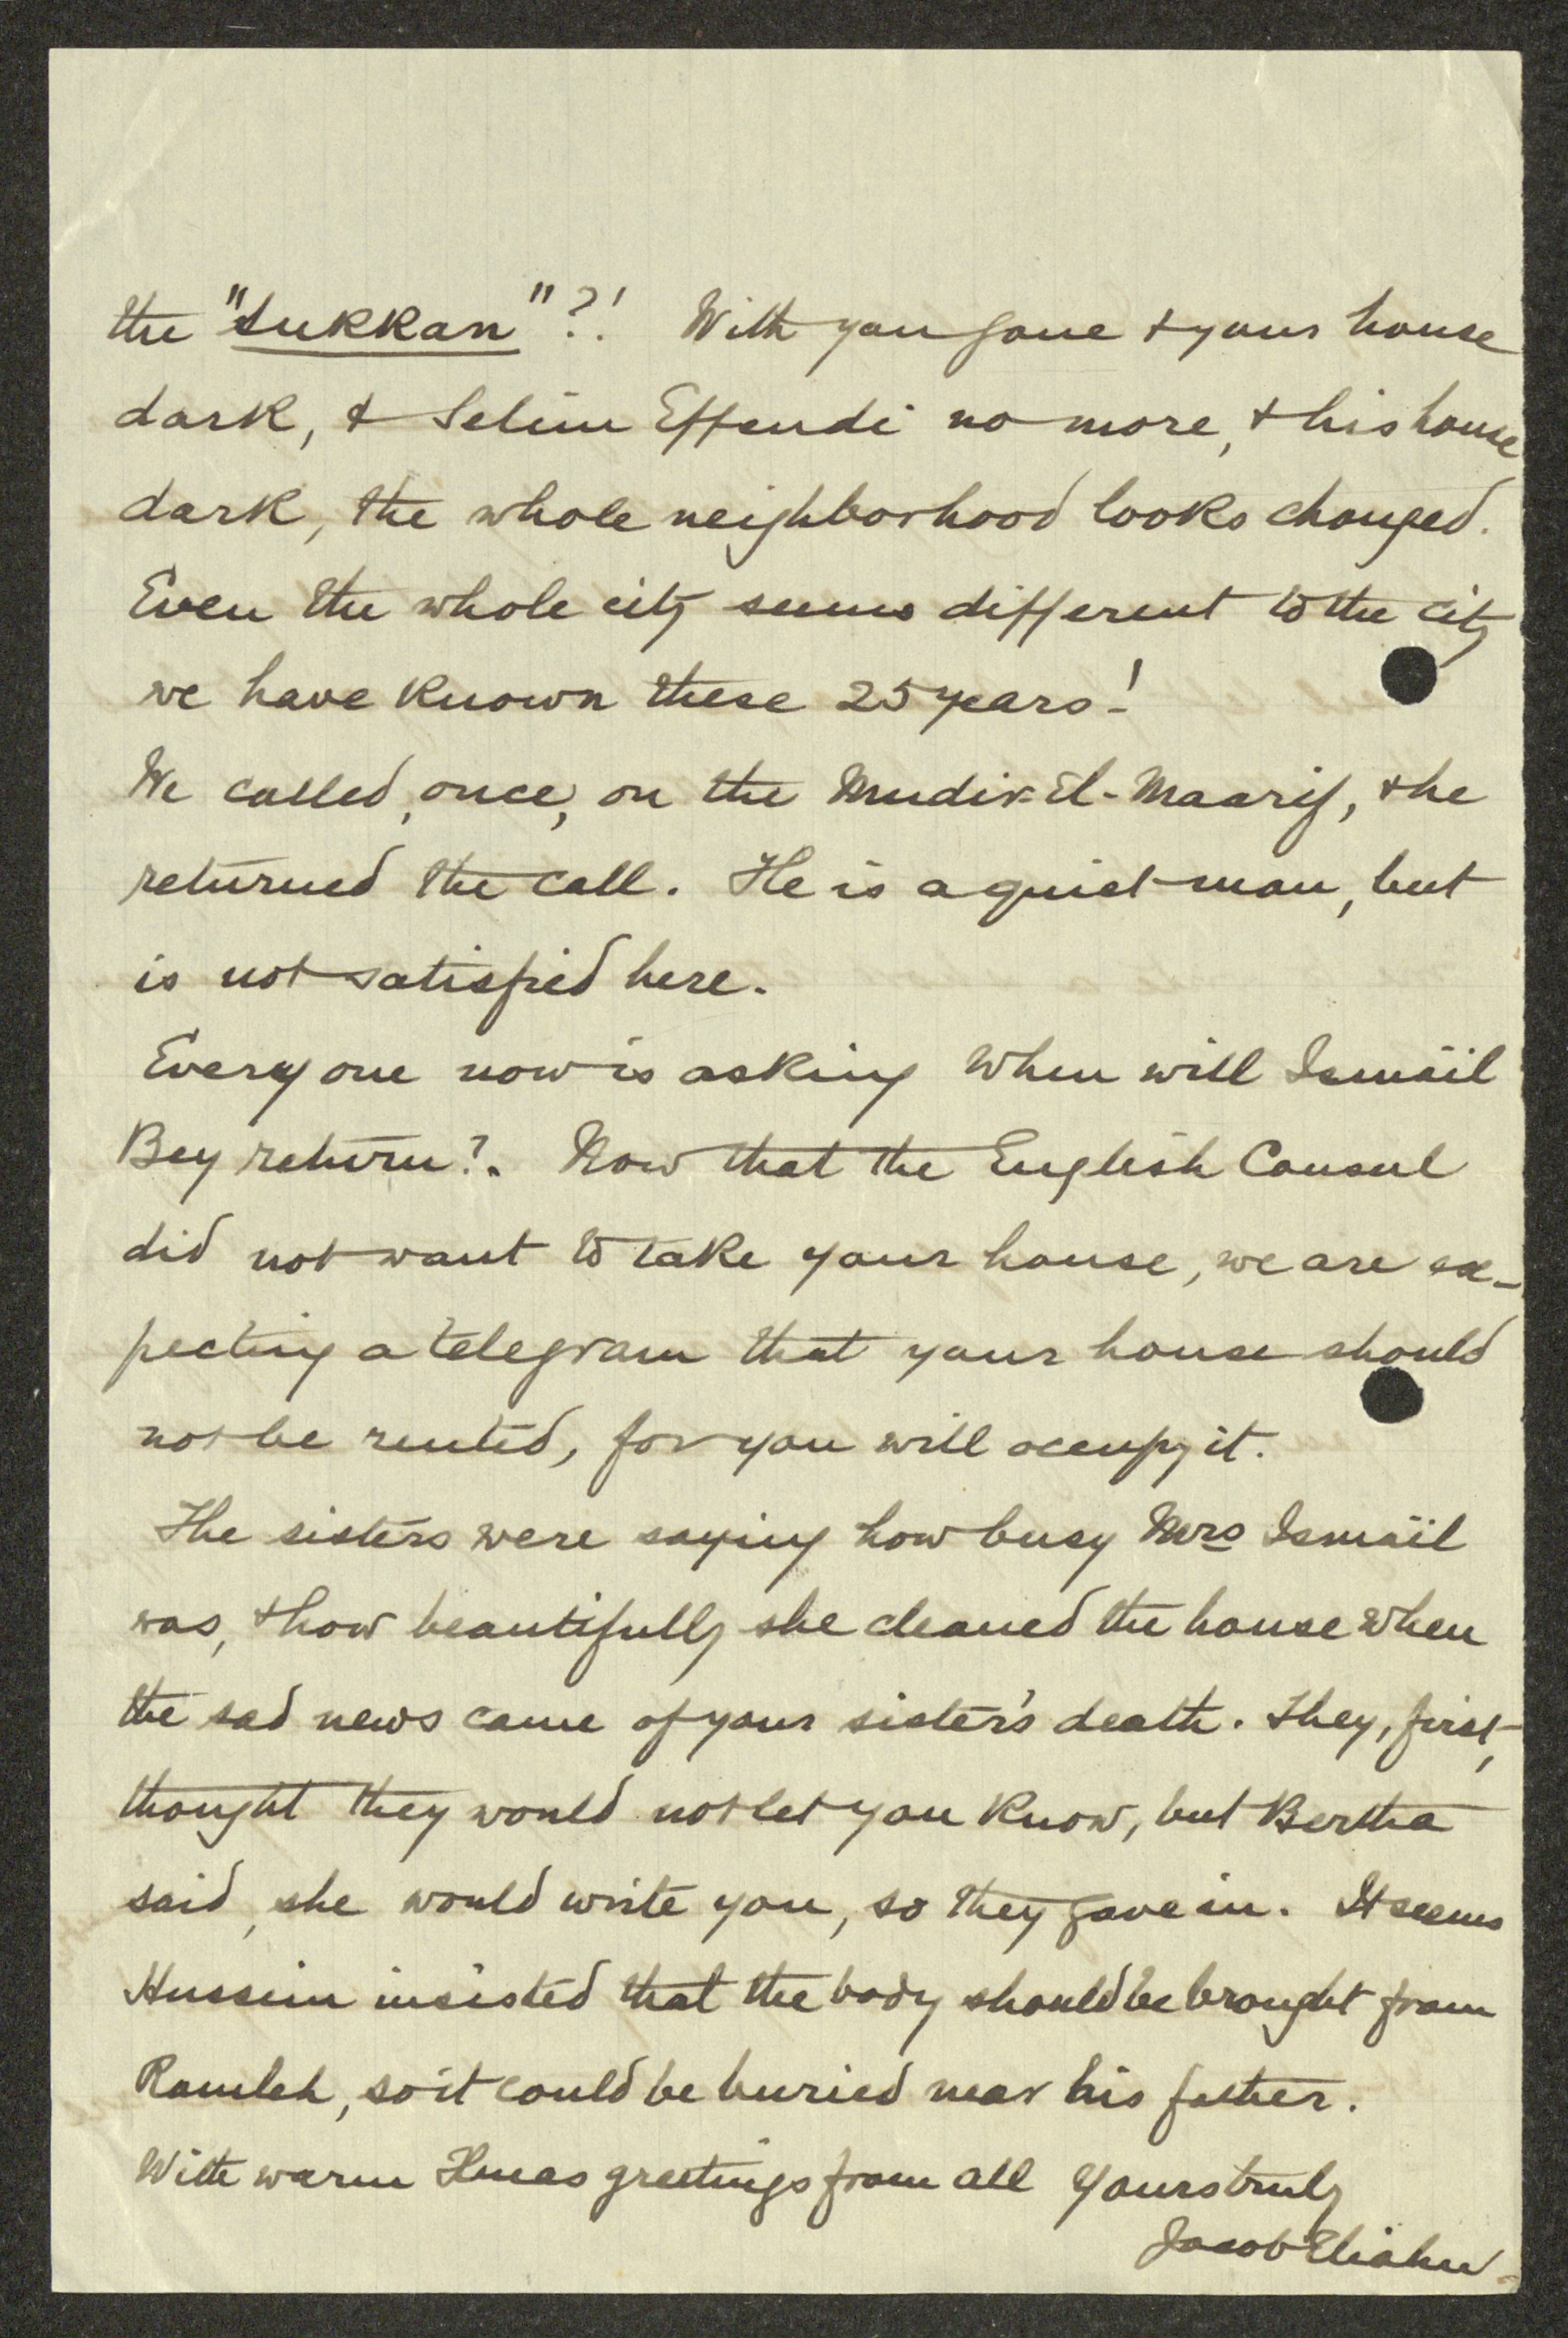 the "Sukkan"?! With you gone & your house
dark, & Selim Effendi no more, & his house
dark, the whole neighborhood looks changed.
Even the whole city seems different to the city
we have known these 25 years!
We called, once, on the Mudir-El-Maarif, & he
returned the call. He is a quiet man, but
is not satisfied here.
Everyone now is asking when will Ismail
Bey return?. Now that the English Consul
did not want to take your house, we are ex-
pecting a telegram that your house should
not be rented, for you will occupy it.
The sisters were saying how busy Mrs Ismail
was, & how beautifully she cleaned the house when
the sad news came of your sister's death. They, first,
thought they would not let you know, but Bertha
said, she would write you, so they gave in. It seems
Hussein insisted that the body should be brought from
Ramleh, so it could be buried near his father.
With warm Xmas greetings from all Yours truly
Jacob Eliahu